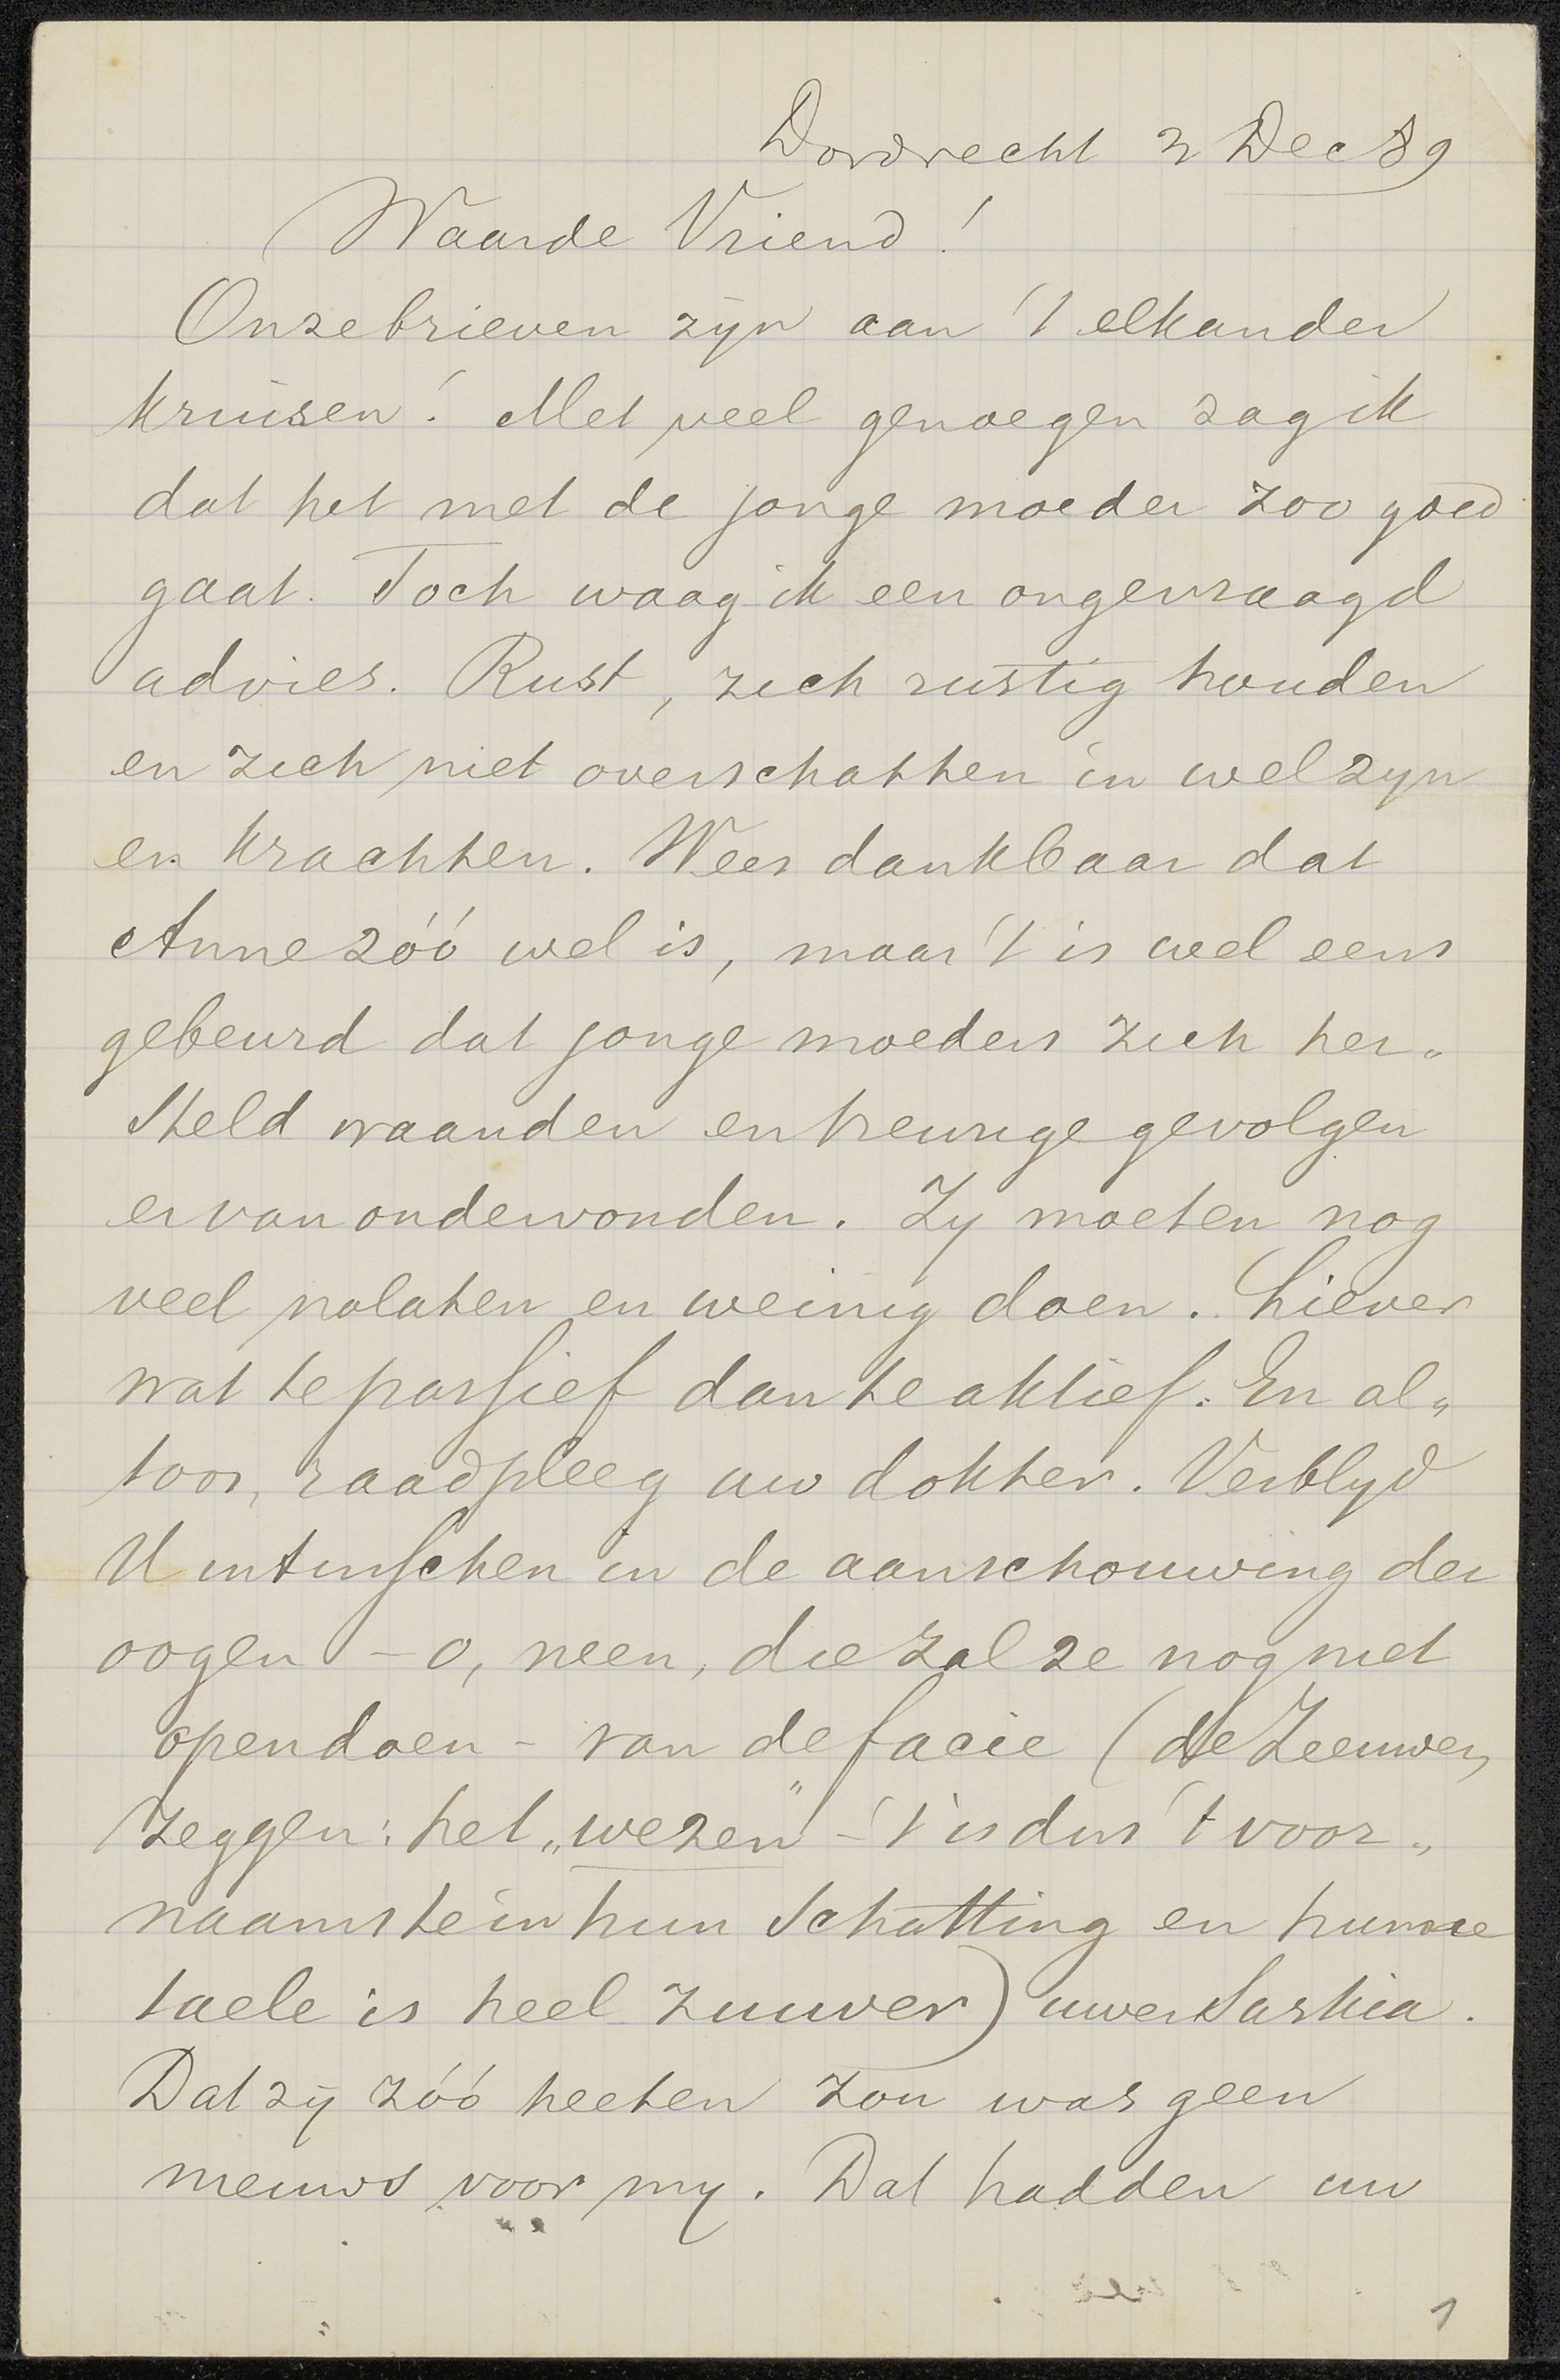 Dordrecht 2 Dec 89
Waarde Vriend!
Onze brieven zyn aan 't elkander
kruisen! Met veel genoegen zag ik
dat het met de jonge moeder zoo goed
gaat. Toch waag ik een ongevraagd
advies. Rust, zich rustig houden
en zich niet overschatten in welzyn
en krachten. Wees dankbaar dat
Anne zóó wel is, maar 't is wel eens
gebeurd dat jonge moeders zich her„
steld waanden en treurige gevolgen
ervan ondervonden. Zy moeten nog
veel nalaten en weinig doen. Liever
wat te passief dan te aktief. En al„
toos, raadpleeg uw dokter. Verblyd
U intusschen in de aanschouwing der
oogen – o, neen, die zal ze nog niet
opendoen – van de facie (de Zeeuwen
zeggen: het „wezen" – 't is dus 't voor„
naamste in hun schatting en hunne
taele is heel zuuver) uwer Saskia.
Dat zij zóó heeten zou was geen
nieuws voor my. Dat hadden uw
1